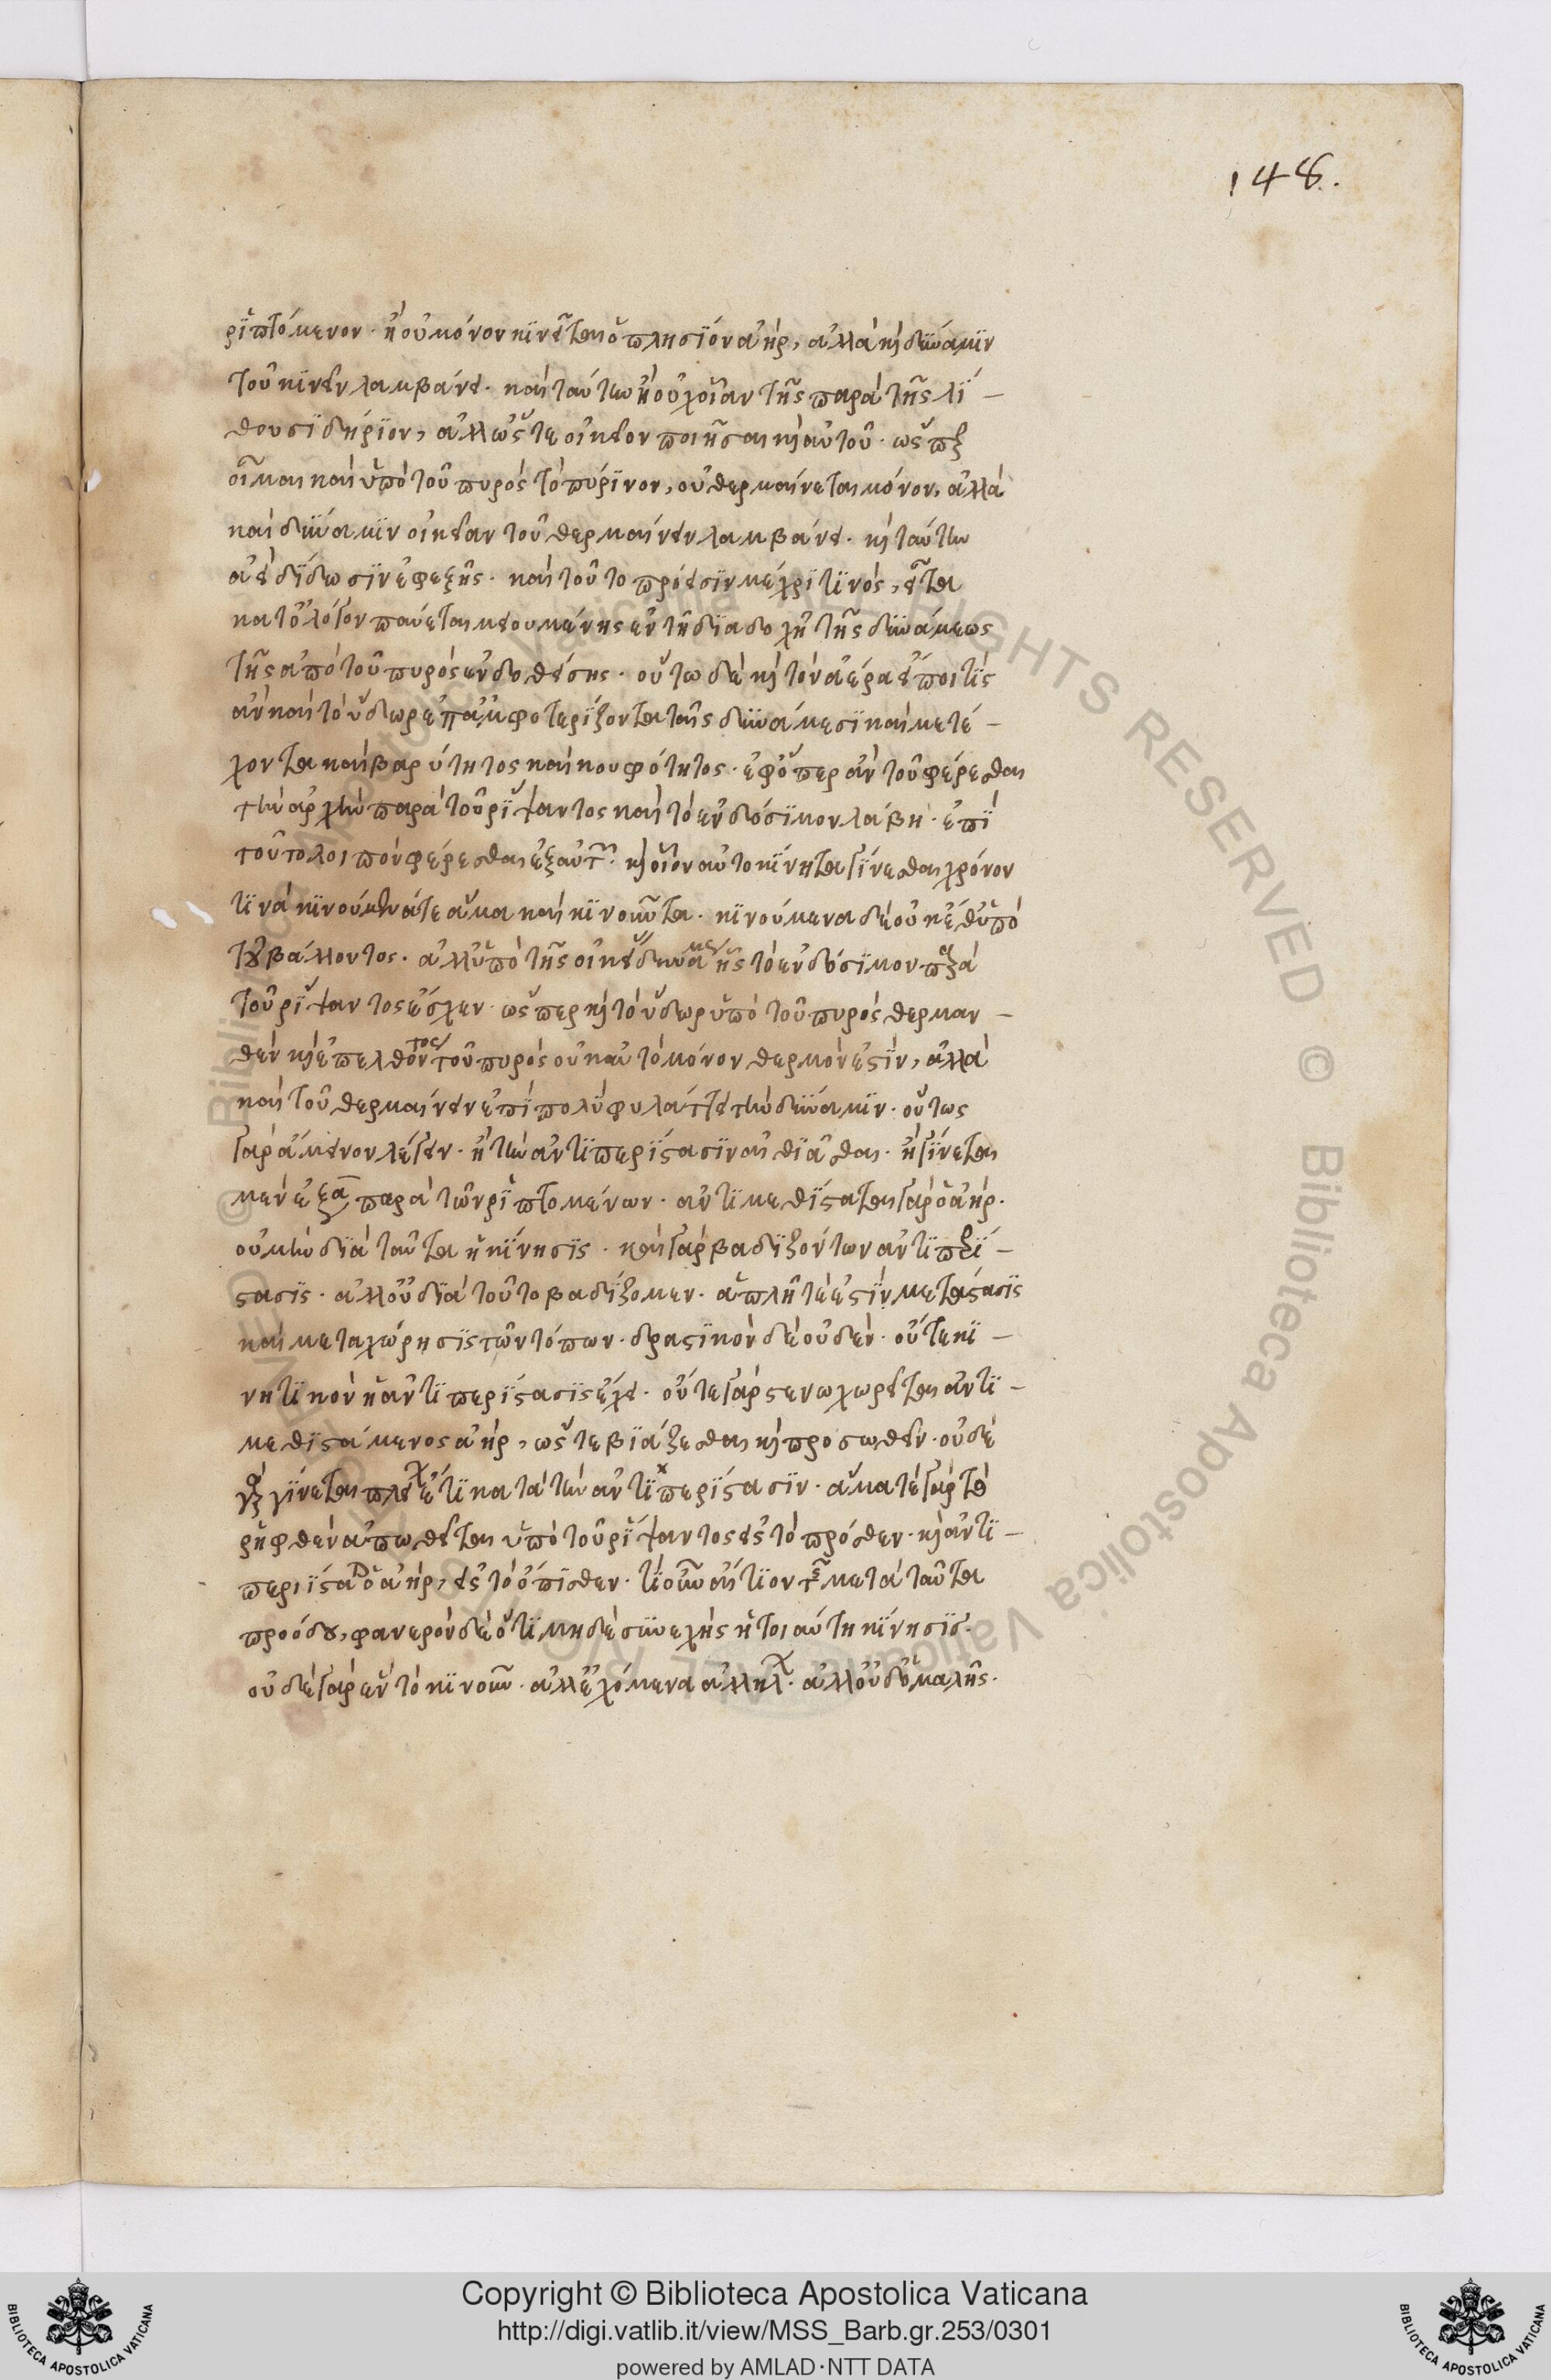 148.
ῥιπτόμενον· ἢ οὐ μόνον κινεῖται ὁ πλησίον ἀήρ, ἀλλὰ καὶ δύναμιν
τοῦ κινεῖν λαμβάνει· καὶ ταύτην οὐχ οἵαν τῆς παρὰ τῆς λί-
θου σιδήριον, ἀλλ' ὥστε οἰκεῖον ποιῆσαι καὶ αὐτοῦ· ὥσπερ
οἶμαι καὶ ὑπὸ τοῦ πυρὸς τὸ πύρινον, οὐ θερμαίνεται μόνον, ἀλλὰ
καὶ δύναμιν οἰκείαν τοῦ θερμαίνειν λαμβάνει· καὶ ταύτην
ἀεὶ δίδωσιν ἐφεξῆς· καὶ τοῦτο πρόεισιν μέχρι τινός, εἶτα
κατ' ὀλίγον παύεται μειουμένης ἐν τῇ διαδοχῇ τῆς δυνάμεως
τῆς ἀπὸ τοῦ πυρὸς ἐνδοθείσης· οὕτω δὲ καὶ τὸν ἀέρα εἴποι τις
ἂν καὶ τὸ ὕδωρ ἐπαμφοτερίζοντα ταῖς δυνάμεσι καὶ μετέ-
χοντα καὶ βαρύτητος καὶ κουφότητος· ἐφ' ὅπερ ἂν τοῦ φέρεσθαι
τὴν ἀρχὴν παρὰ τοῦ ῥίψαντος καὶ τὸ ἐνδόσιμον λάβῃ· ἐπὶ
τοῦτο λοιπὸν φέρεσθαι ἐξ αὐτοῦ· καὶ οἷον αὐτοκίνητα γίνεσθαι χρόνον
τινὰ κινούμενά τε ἅμα καὶ κινοῦντα· κινούμενα δὲ οὐκέθ' ὑπὸ
τοῦ βάλλοντος· ἀλλ' ὑπὸ τῆς οἰκείας δυνάμεως ἧς τὸ ἐνδόσιμον παρὰ
τοῦ ῥίψαντος ἔσχεν· ὥσπερ καὶ τὸ ὕδωρ ὑπὸ τοῦ πυρὸς θερμαν-
θὲν καὶ ἐπελθόντος τοῦ πυρὸς οὐκ αὐτὸ μόνον θερμόν ἐστιν, ἀλλὰ
καὶ τοῦ θερμαίνειν ἐπὶ πολὺ φυλάττει τὴν δύναμιν· οὕτως
γὰρ ἄμεινον λέγειν· ἢ τὴν ἀντιπερίστασιν αἰτιᾶσθαι· ἢ γίνεται
μὲν παρὰ τῶν ῥιπτομένων· ἀντιμεθίσταται γὰρ ὁ ἀήρ·
οὐ μὴν διὰ ταῦτα ἡ κίνησις· καὶ γὰρ βαδιζόντων ἀντιπερί-
στασις· ἀλλ' οὐ διὰ τοῦτο βαδίζομεν· ἁπλῆ τέ ἐστιν μετάστασις
καὶ μεταχώρησις τῶν τόπων· δραστικὸν δὲ οὐδέν· οὔτε κι-
νητικὸν ἡ ἀντιπερίστασις ἔχει· οὔτε γὰρ στενοχωρεῖται ἀντι-
μεθιστάμενος ἀήρ, ὥστε βιάζεσθαι καὶ προσωθεῖν· οὐδὲ
γὰρ γίνεται ἔτι κατὰ τὴν ἀντιπερίστασιν· ἅμα τε γὰρ τὸ
ῥιφθὲν ἀπωθεῖται ὑπὸ τοῦ ῥίψαντος εἰς τὸ πρόσθεν· καὶ ἀντι-
περιίσταται ὁ ἀήρ, εἰς τὸ ὄπισθεν· τί οὖν αἴτιον τῆς μετὰ ταῦτα
προόδου, φανερὸν δὲ ὅτι μηδὲ συνεχὴς ἡ τοιαύτη κίνησις·
οὐδὲ γὰρ ἓν τὸ κινοῦν· ἀλλ' ἐχόμενα ἀλλήλων· ἀλλ' οὐδ' ὁμαλής·
Copyright © Biblioteca Apostolica Vaticana
http://digi.vatlib.it/view/MSS_Barb.gr.253/0301
powered by AMLAD·NTT DATA